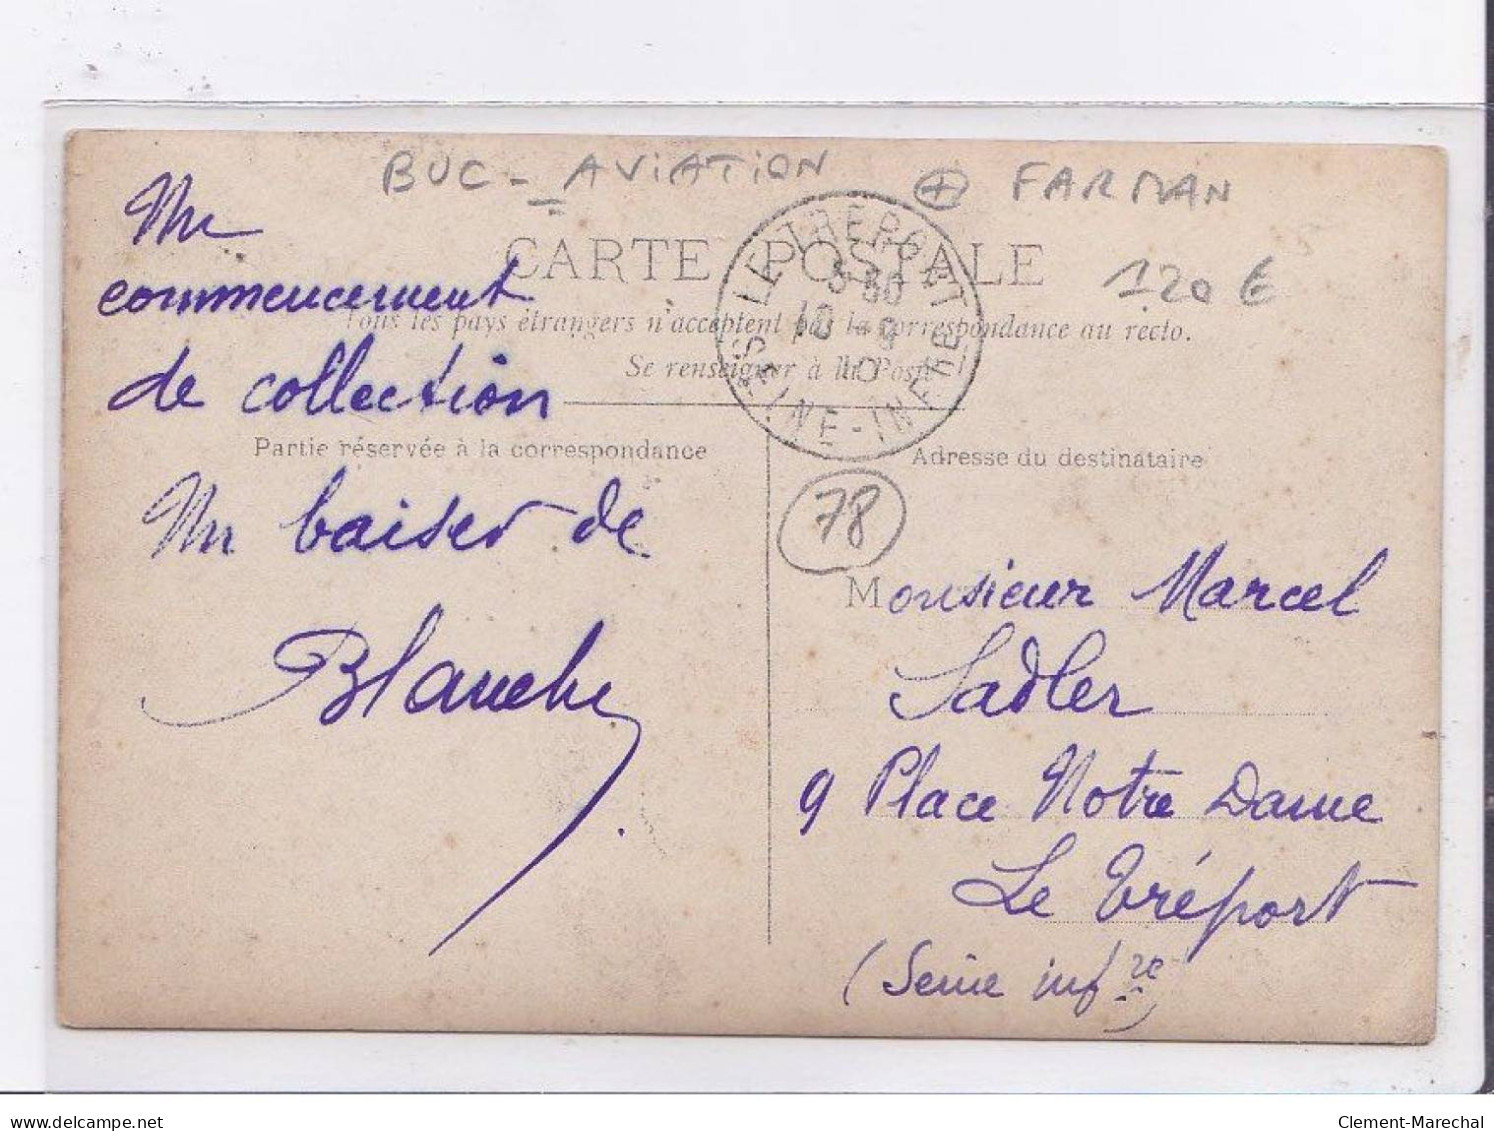 BUC - AVIATION + FARMAN
120 €
CARTE POSTALE
Tous les pays étrangers n'acceptent pas la correspondance au recto.
Se renseigner à la Poste
LE TRÉPORT
SEINE-INFRE
Un
commencement
de collection
Partie réservée à la correspondance
Un baiser de
Blanche
Adresse du destinataire
78
Monsieur Marcel
Sadler
9 Place Notre Dame
Le Tréport
(Seine infre)
delcampe.net
Clement-Marechal